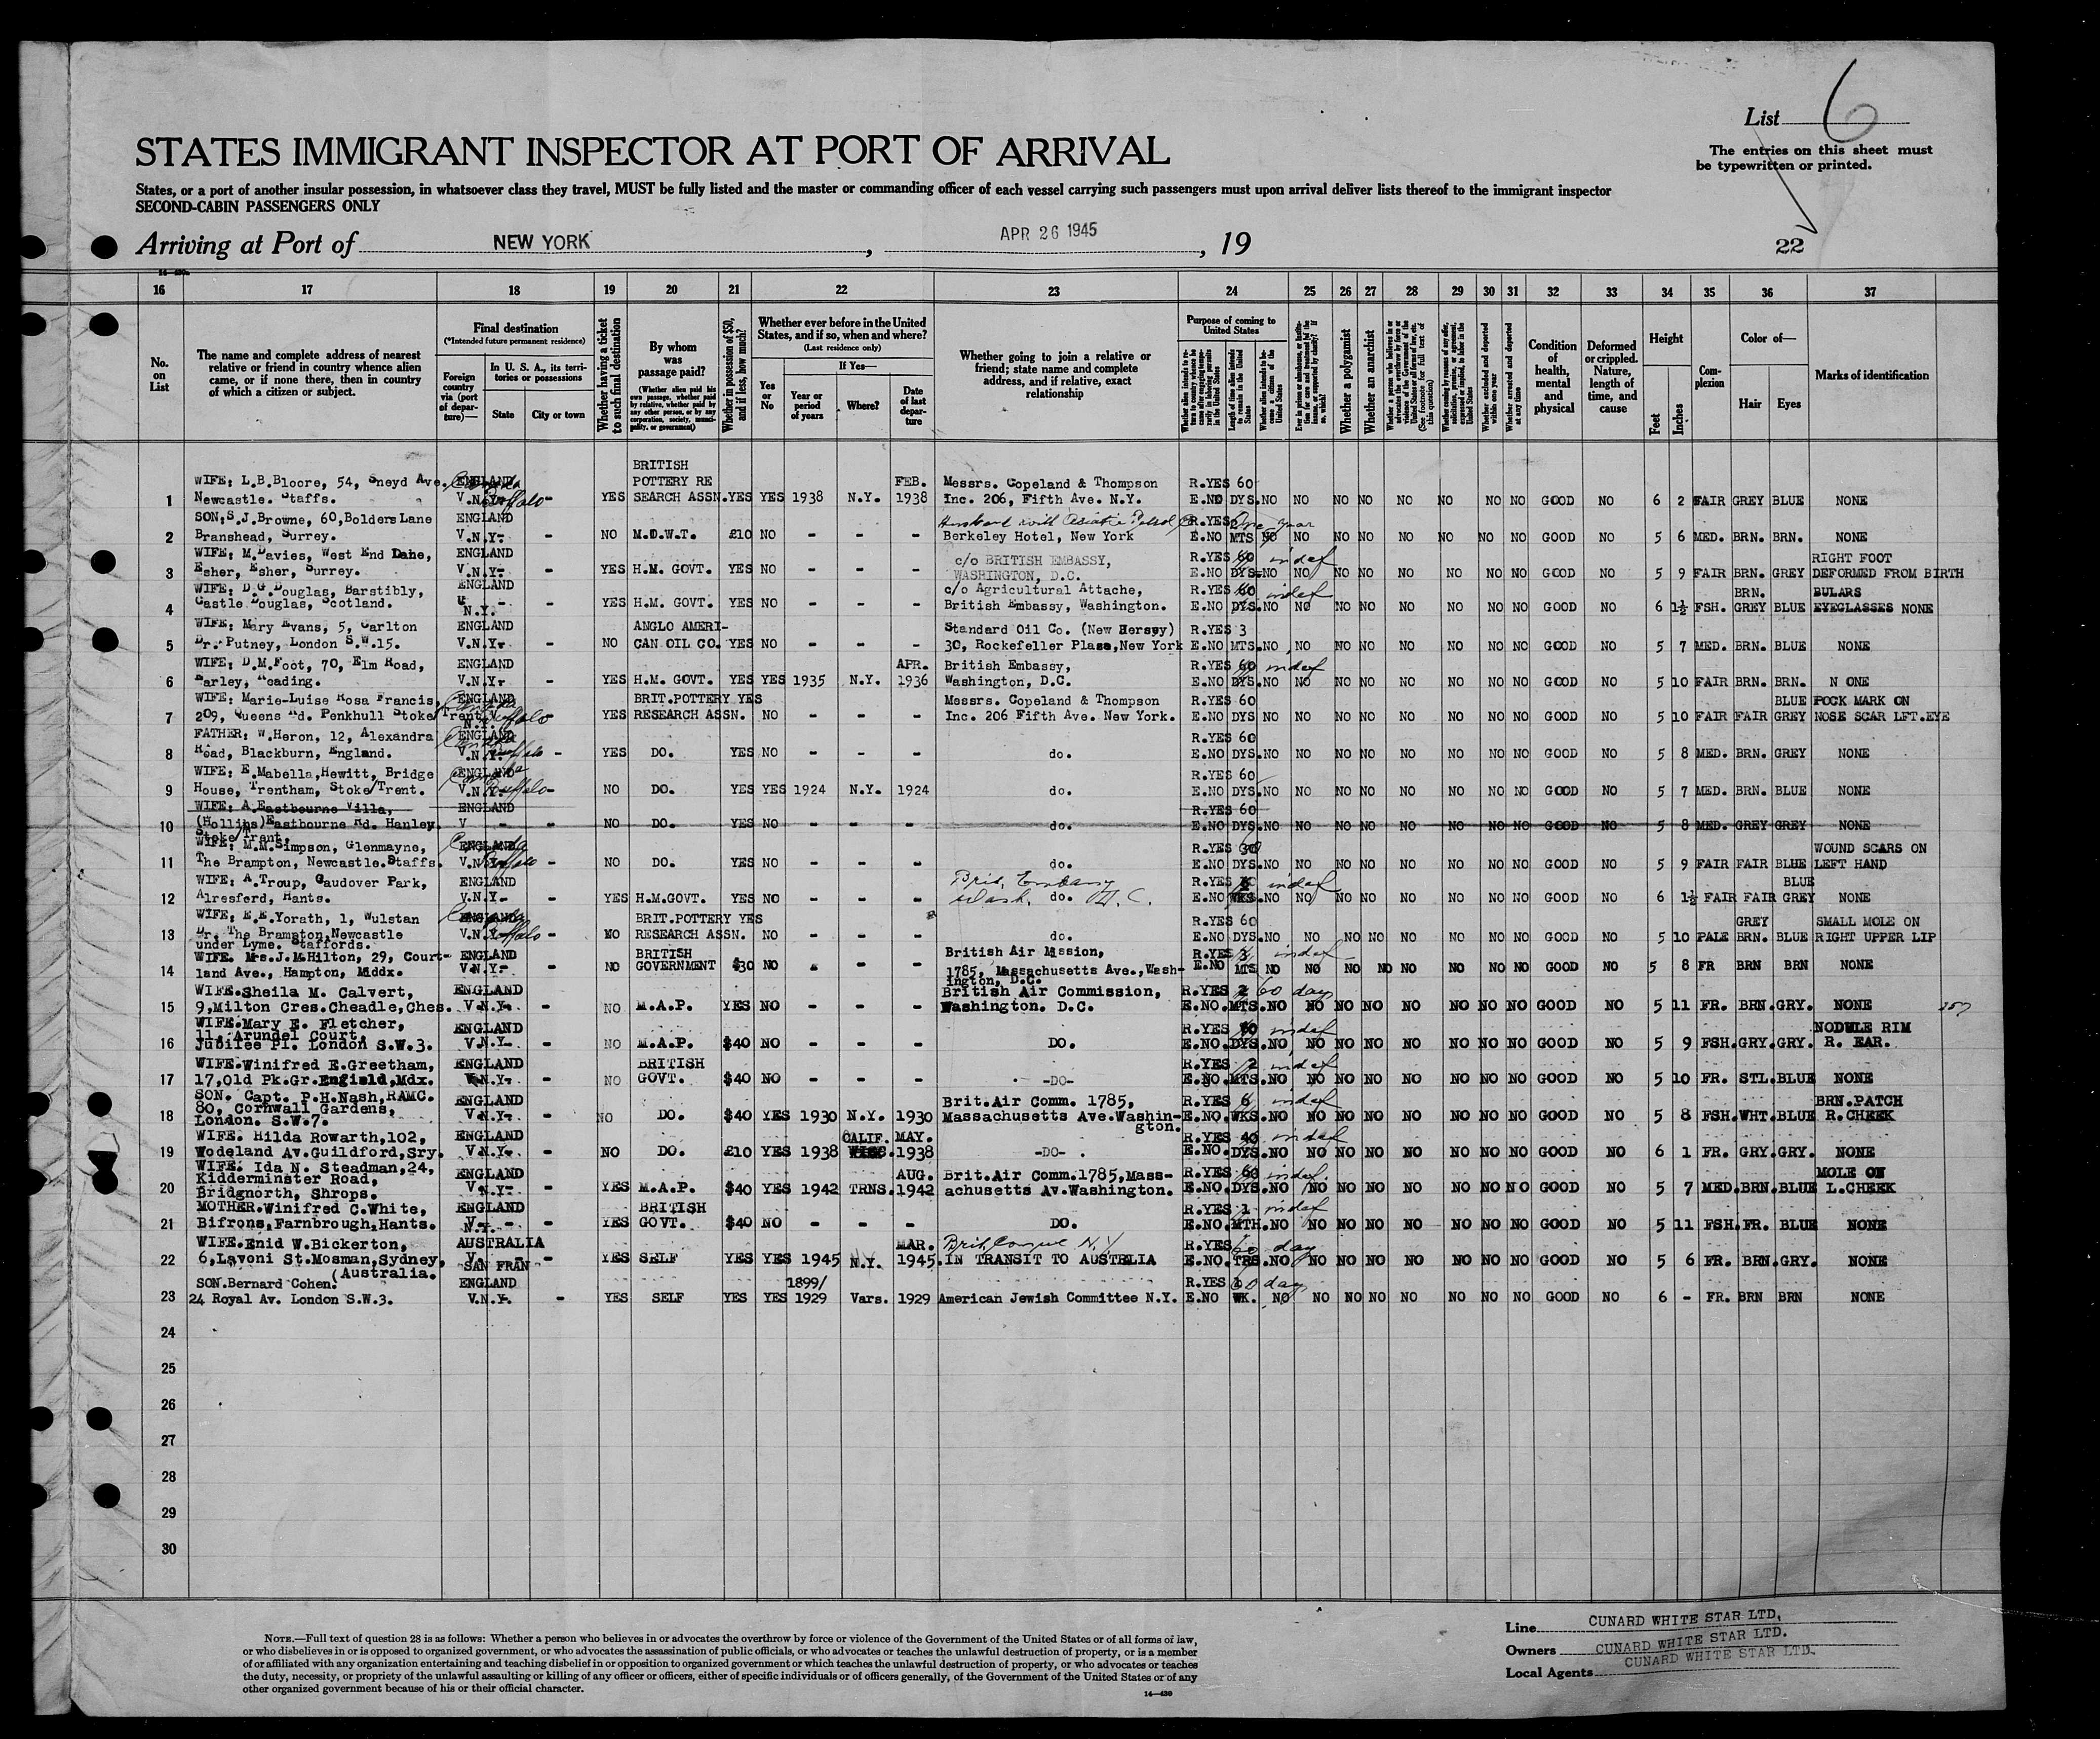 List 6
The entries on this sheet must
be typewritten or printed.
STATES IMMIGRANT INSPECTOR AT PORT OF ARRIVAL
States, or a port of another insular possession, in whatsoever class they travel, MUST be fully listed and the master or commanding officer of each vessel carrying such passengers must upon arrival deliver lists thereof to the immigrant inspector
SECOND-CABIN PASSENGERS ONLY
Arriving at Port of NEW YORK, APR 26 1945, 19 22
16 17 18 19 20 21 22 23 24 25 26 27 28 29 30 31 32 33 34 35 36 37
No. on List
The name and complete address of nearest relative or friend in country whence alien came, or if none there, then in country of which a citizen or subject.
Final destination
(*Intended future permanent residence)
Foreign country via (port of departure)—
In U. S. A., its territories or possessions
State City or town
Whether having a ticket to such final destination
By whom was passage paid?
(Whether alien paid his own passage, whether paid by relative, whether paid by any other person, or by any corporation, society, municipality, or government)
Whether in possession of $50, and if less, how much?
Whether ever before in the United States, and if so, when and where?
(Last residence only)
Yes or No
If Yes—
Year or period of years Where? Date of last departure
Whether going to join a relative or friend; state name and complete address, and if relative, exact relationship
Purpose of coming to United States
Length of time alien intends to remain in the United States
Whether alien intends to become a citizen of the United States
Whether a polygamist
Whether an anarchist
Whether excluded and deported within one year
Whether arrested and deported at any time
Condition of health, mental and physical
Deformed or crippled. Nature, length of time, and cause
Height
Feet Inches
Complexion
Color of—
Hair Eyes
Marks of identification
BRITISH
WIFE: L.B.Bloore, 54, Sneyd Ave. ENGLAND Canada POTTERY RE FEB. Messrs. Copeland & Thompson R.YES 60
1 Newcastle. Staffs. V.N.Y. Buffalo - YES SEARCH ASSN. YES YES 1938 N.Y. 1938 Inc. 206, Fifth Ave. N.Y. E.NO DYS. NO NO NO NO NO NO NO NO GOOD NO 6 2 FAIR GREY BLUE NONE
SON: S.J.Browne, 60,Bolders Lane ENGLAND Husband with Asiatic Petrol R.YES One year
2 Branshead, Surrey. V.N.Y- - NO M.O.W.T. £10 NO - - - Berkeley Hotel, New York E.NO MTS NO NO NO NO NO NO NO NO GOOD NO 5 6 MED. BRN. BRN. NONE
WIFE: M.Davies, West End Dahe, ENGLAND c/o BRITISH EMBASSY, R.YES 60 indef RIGHT FOOT
3 Esher, Esher, Surrey. V.N.Y- - YES H.M. GOVT. YES NO - - - WASHINGTON, D.C. E.NO DYS. NO NO NO NO NO NO NO NO GOOD NO 5 9 FAIR BRN. GREY DEFORMED FROM BIRTH
WIFE: D.G.Douglas, Barstibly, ENGLAND c/o Agricultural Attache, R.YES 60 indef BRN. BULARS
4 Castle Douglas, Scotland. N.Y. - YES H.M. GOVT. YES NO - - - British Embassy, Washington. E.NO DYS. NO NO NO NO NO NO NO NO GOOD NO 6 1½ FSH. GREY BLUE EYEGLASSES NONE
WIFE: Mary Evans, 5, Carlton ENGLAND ANGLO AMERI- Standard Oil Co. (New Hersey) R.YES 3
5 Dr. Putney, London S.W.15. V.N.Y- - NO CAN OIL CO. YES NO - - - 30, Rockefeller Plasa,New York E.NO MTS. NO NO NO NO NO NO NO NO GOOD NO 5 7 MED. BRN. BLUE NONE
WIFE: D.M.Foot, 70, Elm Road, ENGLAND APR. British Embassy, R.YES 60 indef
6 Earley, Reading. V.N.Y- - YES H.M. GOVT. YES YES 1935 N.Y. 1936 Washington, D.C. E.NO DYS. NO NO NO NO NO NO NO NO GOOD NO 5 10 FAIR BRN. BRN. N ONE
WIFE: Marie-Luise Rosa Francis, ENGLAND Canada BRIT.POTTERY YES Messrs. Copeland & Thompson R.YES 60 BLUE POCK MARK ON
7 209, Queens Rd. Penkhull Stoke/Trent V. N.Y. Buffalo YES RESEARCH ASSN. NO - - - Inc. 206 Fifth Ave. New York. E.NO DYS NO NO NO NO NO NO NO NO GOOD NO 5 10 FAIR FAIR GREY NOSE SCAR LFT.EYE
FATHER: W.Heron, 12, Alexandra ENGLAND Canada R.YES 60
8 Road, Blackburn, England. V.N.Y. Buffalo - YES DO. YES NO - - - do. E.NO DYS. NO NO NO NO NO NO NO NO GOOD NO 5 8 MED. BRN. GREY NONE
WIFE: E.Mabella,Hewitt, Bridge ENGLAND Canada R.YES 60
9 House, Trentham, Stoke/Trent. V.N.Y. Buffalo - NO DO. YES YES 1924 N.Y. 1924 do. E.NO DYS. NO NO NO NO NO NO NO NO GOOD NO 5 7 MED. BRN. BLUE NONE
WIFE: A.Eastbourne Villa, ENGLAND R.YES 60
10 (Hollins)Eastbourne Rd. Hanley. V - - NO DO. YES NO - - - do. E.NO DYS. NO NO NO NO NO NO NO NO GOOD NO 5 8 MED. GREY GREY NONE
Stoke/Trent.
WIFE: M.M.Simpson, Glenmayne, ENGLAND Canada R.YES 30 WOUND SCARS ON
11 The Brampton, Newcastle.Staffs. V.N.Y. Buffalo - NO DO. YES NO - - - do. E.NO DYS. NO NO NO NO NO NO NO NO GOOD NO 5 9 FAIR FAIR BLUE LEFT HAND
WIFE: A.Troup, Gaudover Park, ENGLAND Brit. Embassy R.YES indef BLUE
12 Alresferd, Hants. V.N.Y- - YES H.M.GOVT. YES NO - - - Wash. do. D.C. E.NO WKS. NO NO NO NO NO NO NO NO GOOD NO 6 1½ FAIR FAIR GREY NONE
WIFE: E.E.Yorath, 1, Wulstan ENGLAND Canada BRIT.POTTERY YES R.YES 60 GREY SMALL MOLE ON
13 Dr. The Brampton,Newcastle V.N.Y. Buffalo - NO RESEARCH ASSN. NO - - - do. E.NO DYS. NO NO NO NO NO NO NO NO GOOD NO 5 10 PALE BRN. BLUE RIGHT UPPER LIP
under Lyme. Staffords.
WIFE. Mrs.J.M.Hilton, 29, Court- ENGLAND BRITISH British Air Mission, R.YES 3 indef
14 land Ave., Hampton, Middx. V.N.Y- - NO GOVERNMENT $30 NO - - - 1785, Massachusetts Ave.,Wash- E.NO MTS NO NO NO NO NO NO NO NO GOOD NO 5 8 FR BRN BRN NONE
ington, D.C.
WIFE.Sheila M. Calvert, ENGLAND British Air Commission, R.YES 2 60 days
15 9,Milton Cres.Cheadle,Ches. V.N.Y- - NO M.A.P. YES NO - - - Washington. D.C. E.NO.MTS. NO NO NO NO NO NO NO NO GOOD NO 5 11 FR. BRN.GRY. NONE
WIFE.Mary E. Fletcher, ENGLAND R.YES indef NODULE RIM
11, Arundel Court,
16 Jubilee Pl. London S.W.3. V.N.Y- - NO M.A.P. $40 NO - - - DO. E.NO.DYS. NO NO NO NO NO NO NO NO GOOD NO 5 9 FSH.GRY.GRY. R. EAR.
WIFE.Winifred E.Greetham, ENGLAND BRITISH R.YES 2 indef
17 17,Old Pk.Gr.Enfield,Mdx. V.N.Y- - NO GOVT. $40 NO - - - -DO- E.NO.MTS. NO NO NO NO NO NO NO NO GOOD NO 5 10 FR. STL.BLUE NONE
SON. Capt. P.H.Nash,RAMC. ENGLAND Brit.Air Comm. 1785, R.YES 6 indef BRN.PATCH
80, Cornwall Gardens,
18 London. S.W.7. V.N.Y- - NO DO. $40 YES 1930 N.Y. 1930 Massachusetts Ave.Washin-gton. E.NO.WKS. NO NO NO NO NO NO NO NO GOOD NO 5 8 FSH.WHT.BLUE R.CHEEK
WIFE. Hilda Rowarth,102, ENGLAND CALIF. MAY. R.YES 40 indef
19 Wodeland Av.Guildford,Sry. V.N.Y- - NO DO. £10 YES 1938 1938 -DO- . E.NO.DYS. NO NO NO NO NO NO NO NO GOOD NO 6 1 FR. GRY.GRY. NONE
WIFE. Ida N. Steadman,24, ENGLAND AUG. Brit.Air Comm.1785,Mass- R.YES 60 indef. MOLE ON
Kidderminster Road,
20 Bridgnorth, Shrops. V.N.Y- - YES M.A.P. $40 YES 1942 TRNS. 1942 achusetts Av.Washington. E.NO.DYS. NO NO NO NO NO NO NO NO GOOD NO 5 7 MED.BRN.BLUE L.CHEEK
MOTHER.Winifred C.White, ENGLAND BRITISH R.YES 1 indef
21 Bifrons,Farnbrough,Hants. V- N.Y. - YES GOVT. $40 NO - - - DO. E.NO.MTH. NO NO NO NO NO NO NO NO GOOD NO 5 11 FSH.FR. BLUE NONE
WIFE.Enid W.Bickerton, AUSTRALIA MAR. Brit. Consul N.Y. R.YES 60 day
22 6,Lavoni St.Mosman,Sydney, V. SAN FRAN YES SELF YES YES 1945 N.Y. 1945. IN TRANSIT TO AUSTRLIA E.NO. TRS NO NO NO NO NO NO NO NO GOOD NO 5 6 FR. BRN.GRY. NONE
(Australia.
SON.Bernard Cohen. ENGLAND 1899/ R.YES 60 day
23 24 Royal Av. London S.W.3. V.N.Y. - YES SELF YES YES 1929 Vars. 1929 American Jewish Committee N.Y. E.NO WK. NO NO NO NO NO NO NO NO GOOD NO 6 - FR. BRN BRN NONE
24
25
26
27
28
29
30
NOTE.—Full text of question 28 is as follows: Whether a person who believes in or advocates the overthrow by force or violence of the Government of the United States or of all forms of law,
or who disbelieves in or is opposed to organized government, or who advocates the assassination of public officials, or who advocates or teaches the unlawful destruction of property, or is a member
of or affiliated with any organization entertaining and teaching disbelief in or opposition to organized government or which teaches the unlawful destruction of property, or who advocates or teaches
the duty, necessity, or propriety of the unlawful assaulting or killing of any officer or officers, either of specific individuals or of officers generally, of the Government of the United States or of any
other organized government because of his or their official character.
14—430
Line CUNARD WHITE STAR LTD,
Owners CUNARD WHITE STAR LTD.
Local Agents CUNARD WHITE STAR LTD.